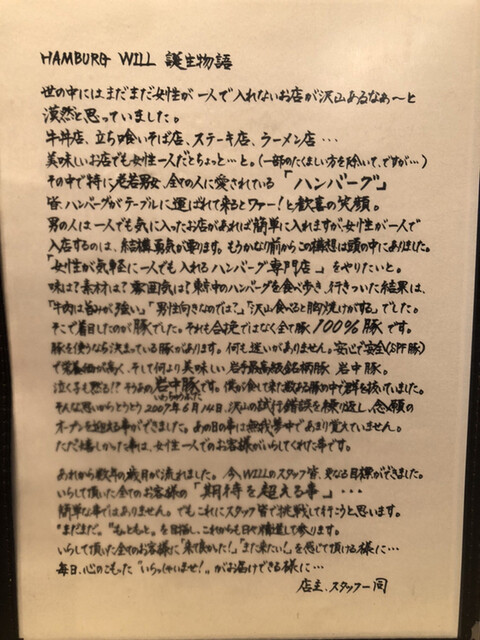 HAMBURG WILL 誕生物語
世の中にはまだまだ女性が一人で入れないお店が沢山あるなぁ〜と
漠然と思っていました。
牛丼店、立ち喰いそば店、ステーキ店、ラーメン店…
美味しいお店でも女性一人だとちょっと…と。(一部のたくましい方を除いて、ですが…)
その中で特に老若男女、全ての人に愛されている「ハンバーグ」
皆、ハンバーグがテーブルに運ばれて来るとワァー!と歓喜の笑顔。
男の人は一人でも気に入ったお店があれば簡単に入れますが、女性が一人で
入店するのは、結構勇気が要ります。もうかなり前からこの構想は頭の中にありました。
「女性が気軽に一人でも入れるハンバーグ専門店。」をやりたいと。
味は?素材は?雰囲気は?東京中のハンバーグを食べ歩き、行きついた結果は、
「牛肉は旨みが強い」「男性向きなのでは?」「沢山食べると胸焼けがする」でした。
そこで着目したのが豚でした。それも合挽ではなく全て豚100%豚です。
豚を使うなら決まっている豚があります。何も迷いがありません。安心で安全(SPF豚)
で栄養価が高く、そして何より美味しい岩手最高級銘柄豚 岩中豚。
泣く子も黙る!?そうあの岩中豚です。僕が食して来た数ある豚の中で群を抜いていました。
いわちゅうぶた
そんな思いからとうとう2007年6月14日、沢山の試行錯誤を繰り返し、念願の
オープンを迎える事ができました。あの日の事は無我夢中であまり覚えていません。
ただ嬉しかった事は、女性一人でのお客様がいらしてくれた事です。
あれから数年の歳月が流れました。今、WILLのスタッフ皆、更なる目標ができました。
いらして頂いた全てのお客様の「期待を超える事」…
簡単な事ではありません。でもこれにスタッフ皆で挑戦して行こうと思います。
"まだまだ。""もっともっと。"を目指し、これからも日々精進して参ります。
いらして頂いた全てのお客様に「来て良かった!」「また来たい!」を感じて頂ける様に…
毎日、心のこもった"いらっしゃいませ!"がお届けできる様に…
店主、スタッフ一同